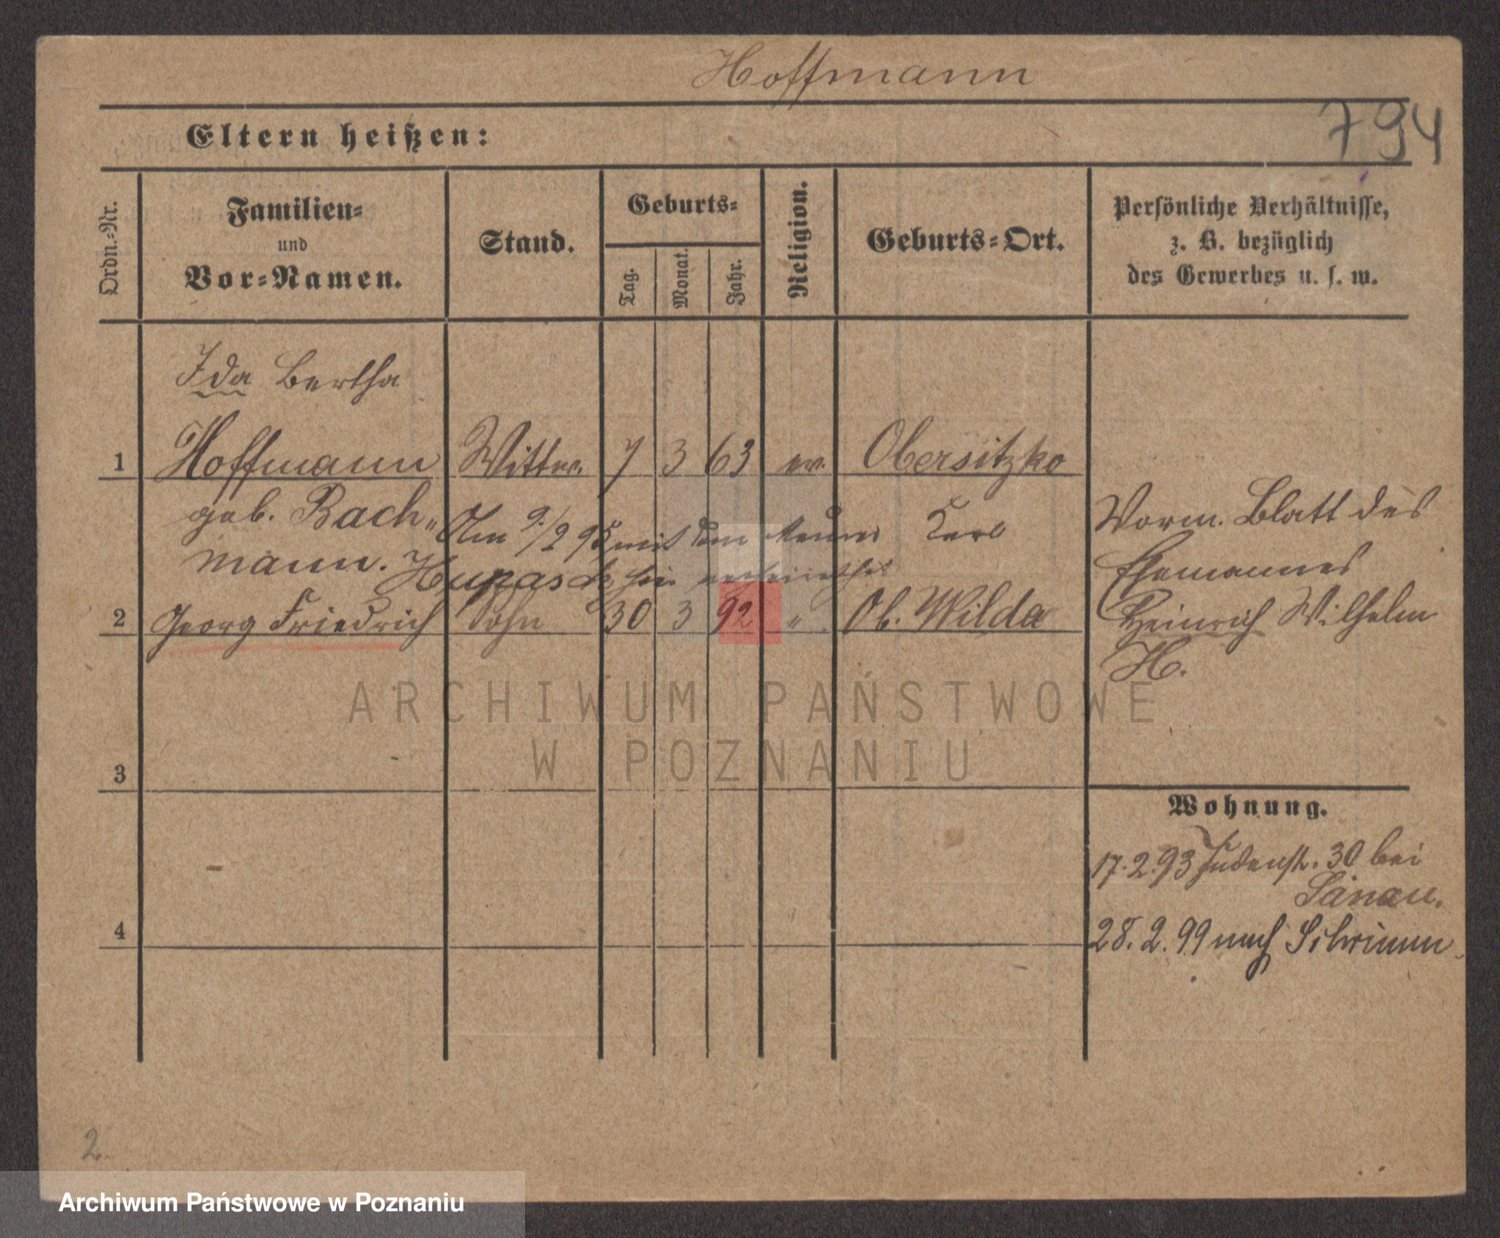 Hoffmann
794
Eltern heißen:
Ordn.-Nr.
Familien-
und
Vor-Namen.
Stand.
Geburts-
Tag.
Monat.
Jahr.
Religion.
Geburts-Ort.
Persönliche Verhältnisse,
z. B. bezüglich
des Gewerbes u. s. w.
Ida Bertha
1 Hoffmann Wittwe. 7 3 63 ev. Obersitzko
geb. Bach-
mann.
Am 9/2 95 mit dem Karl
2 Georg Friedrich Sohn 30 3 92 " Ob. Wilda
Vorm. Blatt des
Ehemannes
Heinrich Wilhelm
H.
ARCHIWUM PAŃSTWOWE
W POZNANIU
3
Wohnung.
17.2.93 Judenstr. 30 bei
4
28.2.99 nach Schrimm
2.
Archiwum Państwowe w Poznaniu